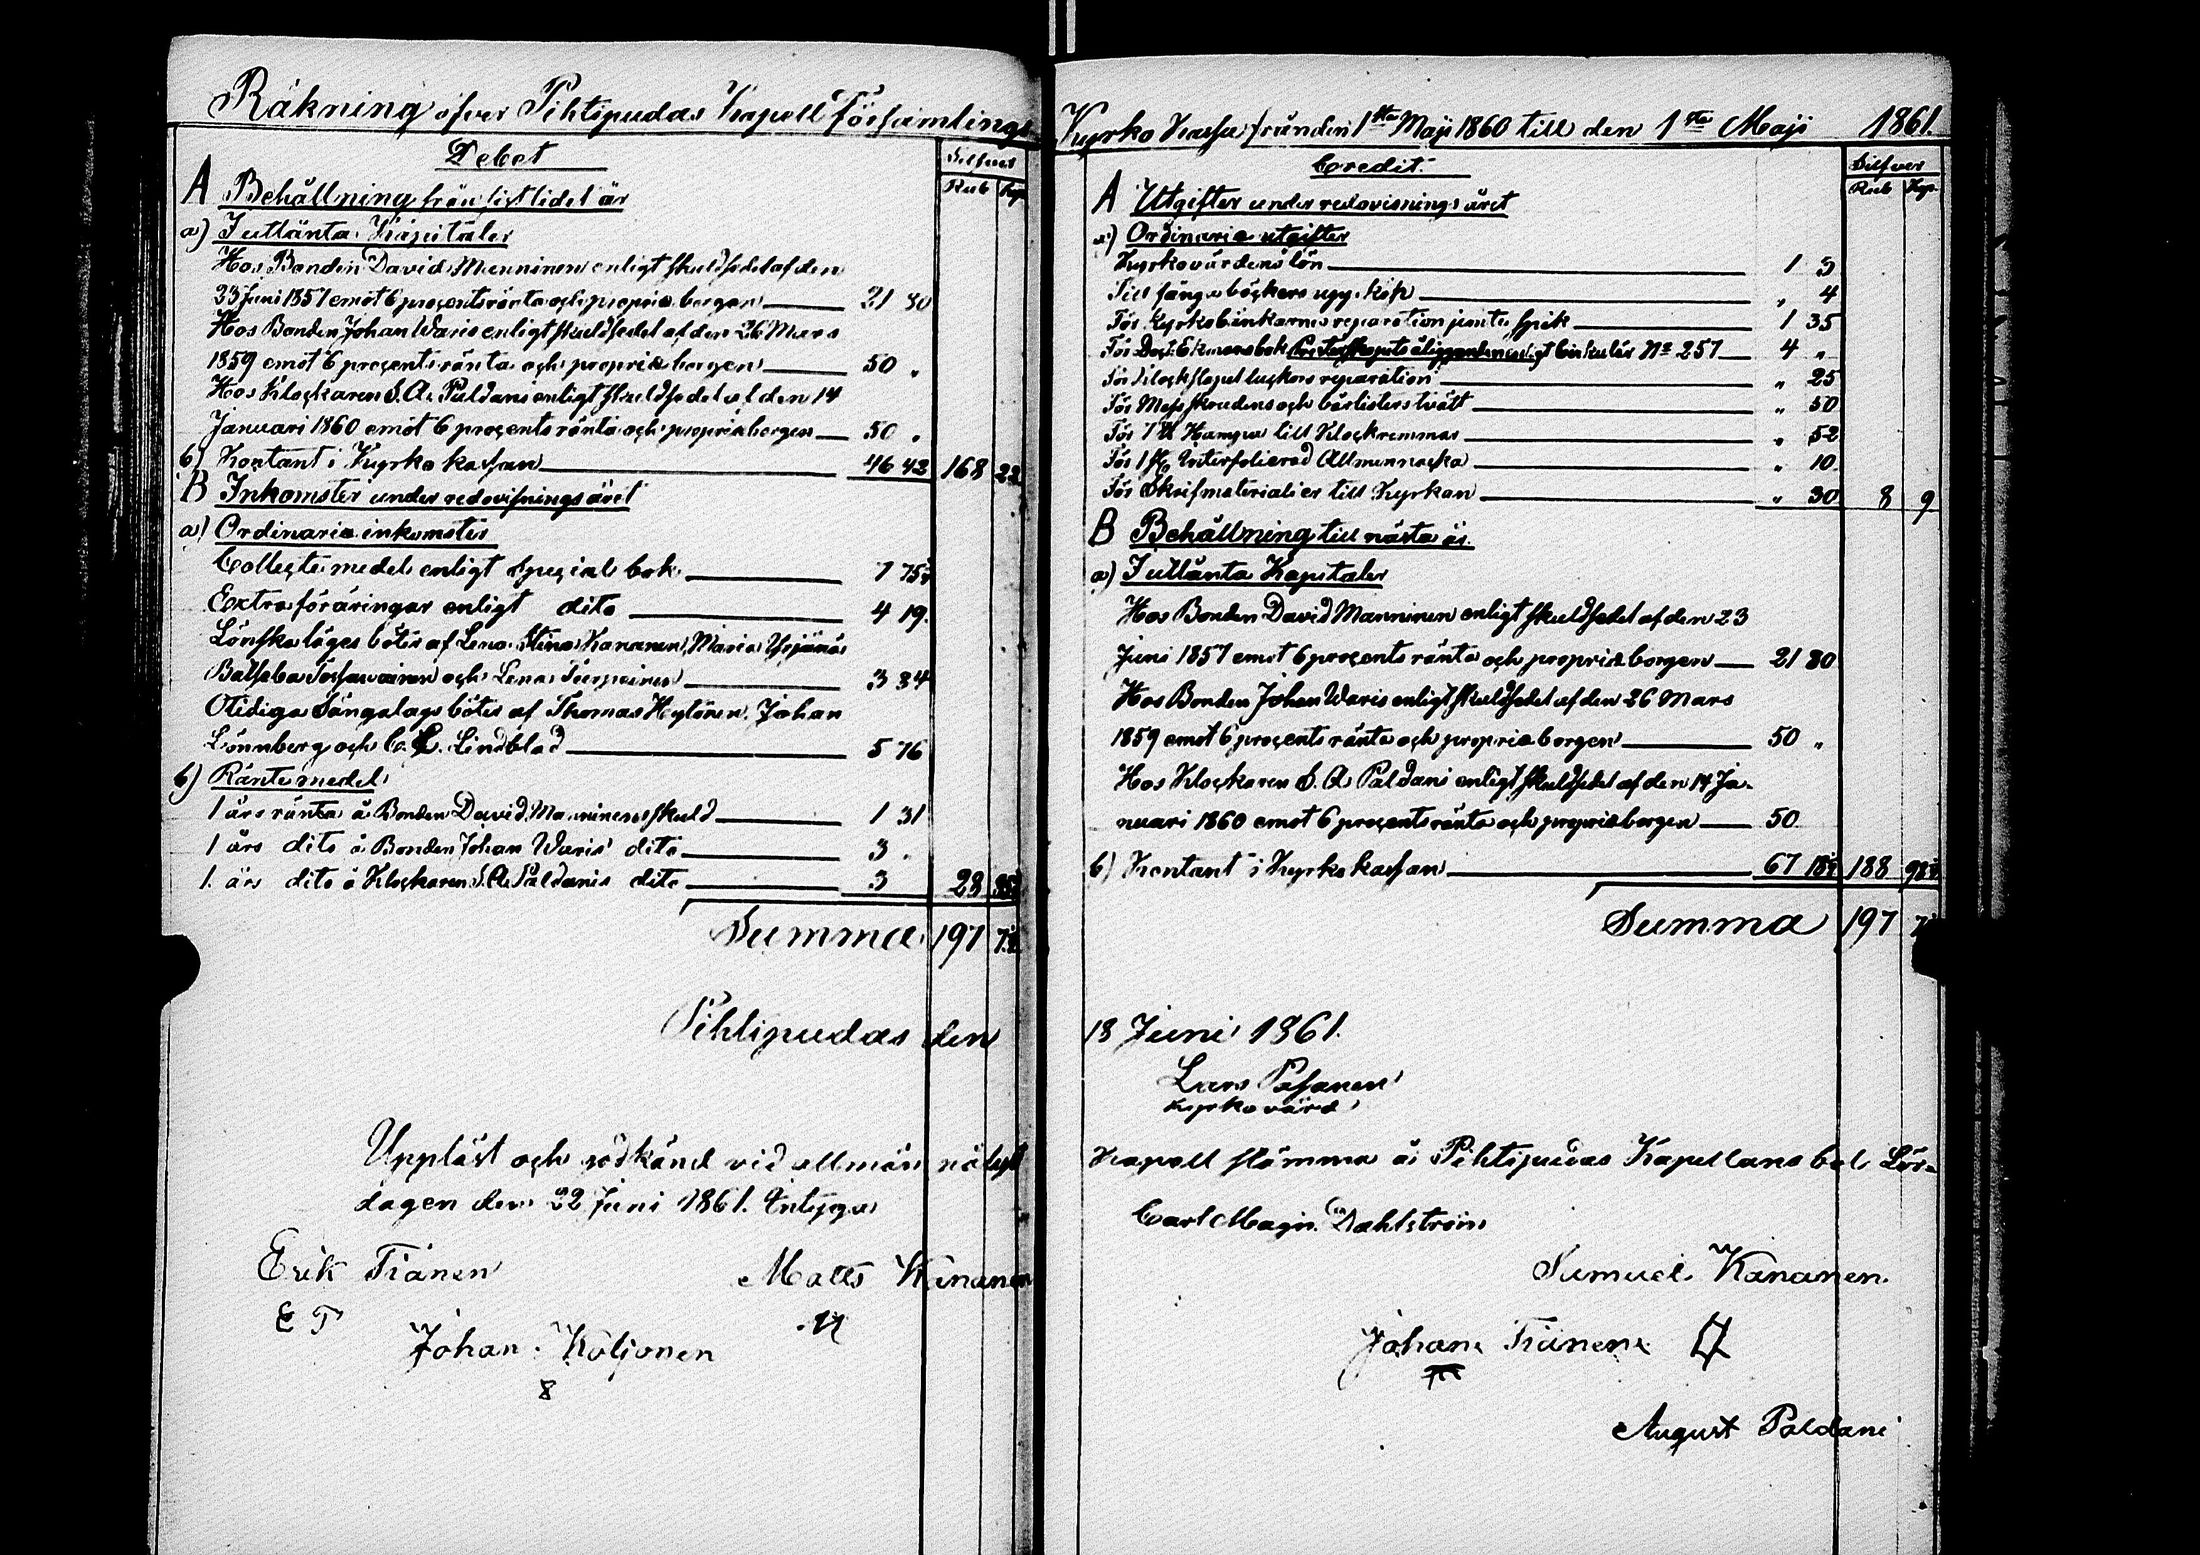 Räkning öfver Pihtipudas Kapell Församlings
Debet
Silfver
Rub Kop
A Behållning från sistlidet år
a) I utlånta Kapitaler
Hos Bonden David Manninen enligt skuldsedel af den
23 Juni 1857 emot 6 procents ränta och proprie borgen 21 80
Hos Bonden Johan Waris enligt skuldsedel af den 26 Mars
1859 emot 6 procents ränta och proprie borgen 50 "
Hos Klockaren S. A. Paldani enligt skuldsedel af den 14
Januari 1860 emot 6 procents ränta och proprie borgen 50 "
b) Kontant i Kyrko kassan 46 42 168 22
B Inkomster under redovisnings året
a) Ordinarie inkomster
Collecte medel enligt special bok 7 75½
Extra föräringar enligt dito 4 19
Lönskaläges böter af Lena Stina Kananen, Maria Yrjänä
Batseba och Lena Turpeinen 3 84
Otidiga Sängalags böter af Thomas Hytönen, Johan
Lönnberg och C. L. Lindblad 5 76
b) Räntemedel
1 års ränta å Bonden David Manninens skuld 1 31
1 års dito å Bonden Johan Waris' dito 3 "
1 års dito å Klockaren S. A. Paldanis dito 3 28 85½
Summa 197 7½
Pihtipudas den
Uppläst och godkänd vid allmän
dagen den 22 Juni 1861. Intyga
Erik Tiänen
E T
Matts Kananen
Johan Koljonen
8
Kyrko Kassa från den 1sta Maji 1860 till den 1sta Maji 1861.
Credit.
Silfver
Rub Kop.
A Utgifter under redovisnings året
a) Ordinarie utgifter
Kyrkovärdens lön 1 3
Till fånga böckers upp köp " 4
För Kyrkobänkarnes reparation jemte spik 1 35
För Doct. Ekmans bok Presterskapets åligganden enligt Cirkulär No 257 4 "
För Klockstapel luckors reparation " 25
För Messskrudens och tvätt " 50
För 1 ℔ Hampa till Klockremmar " 52
För 1 st. Interfolierad Allmannacka " 10
För Skrifmaterialier till Kyrkan " 30 8 9
B Behållning till nästa år.
a) I utlånta Kapitaler
Hos Bonden David Manninen enligt skuldsedel af den 23
Juni 1857 emot 6 procents ränta och proprie borgen 21 80
Hos Bonden Johan Waris enligt skuldsedel af den 26 Mars
1859 emot 6 procents ränta och proprie borgen 50 "
Hos Klockaren S. A. Paldani enligt skuldsedel af den 14 Ja-
nuari 1860 emot 6 procents ränta och proprie borgen 50
b) Kontant i Kyrko kassan 67 18½ 188 98½
Summa 197 7½
18 Juni 1861.
Lars Pasanen
Kyrkovärd
Kapell stämma å Pihtipudas Kapellans bol Lör-
Carl Magn. Dahlström
Samuel Kananen.
Johan Tiänen
August Paldani